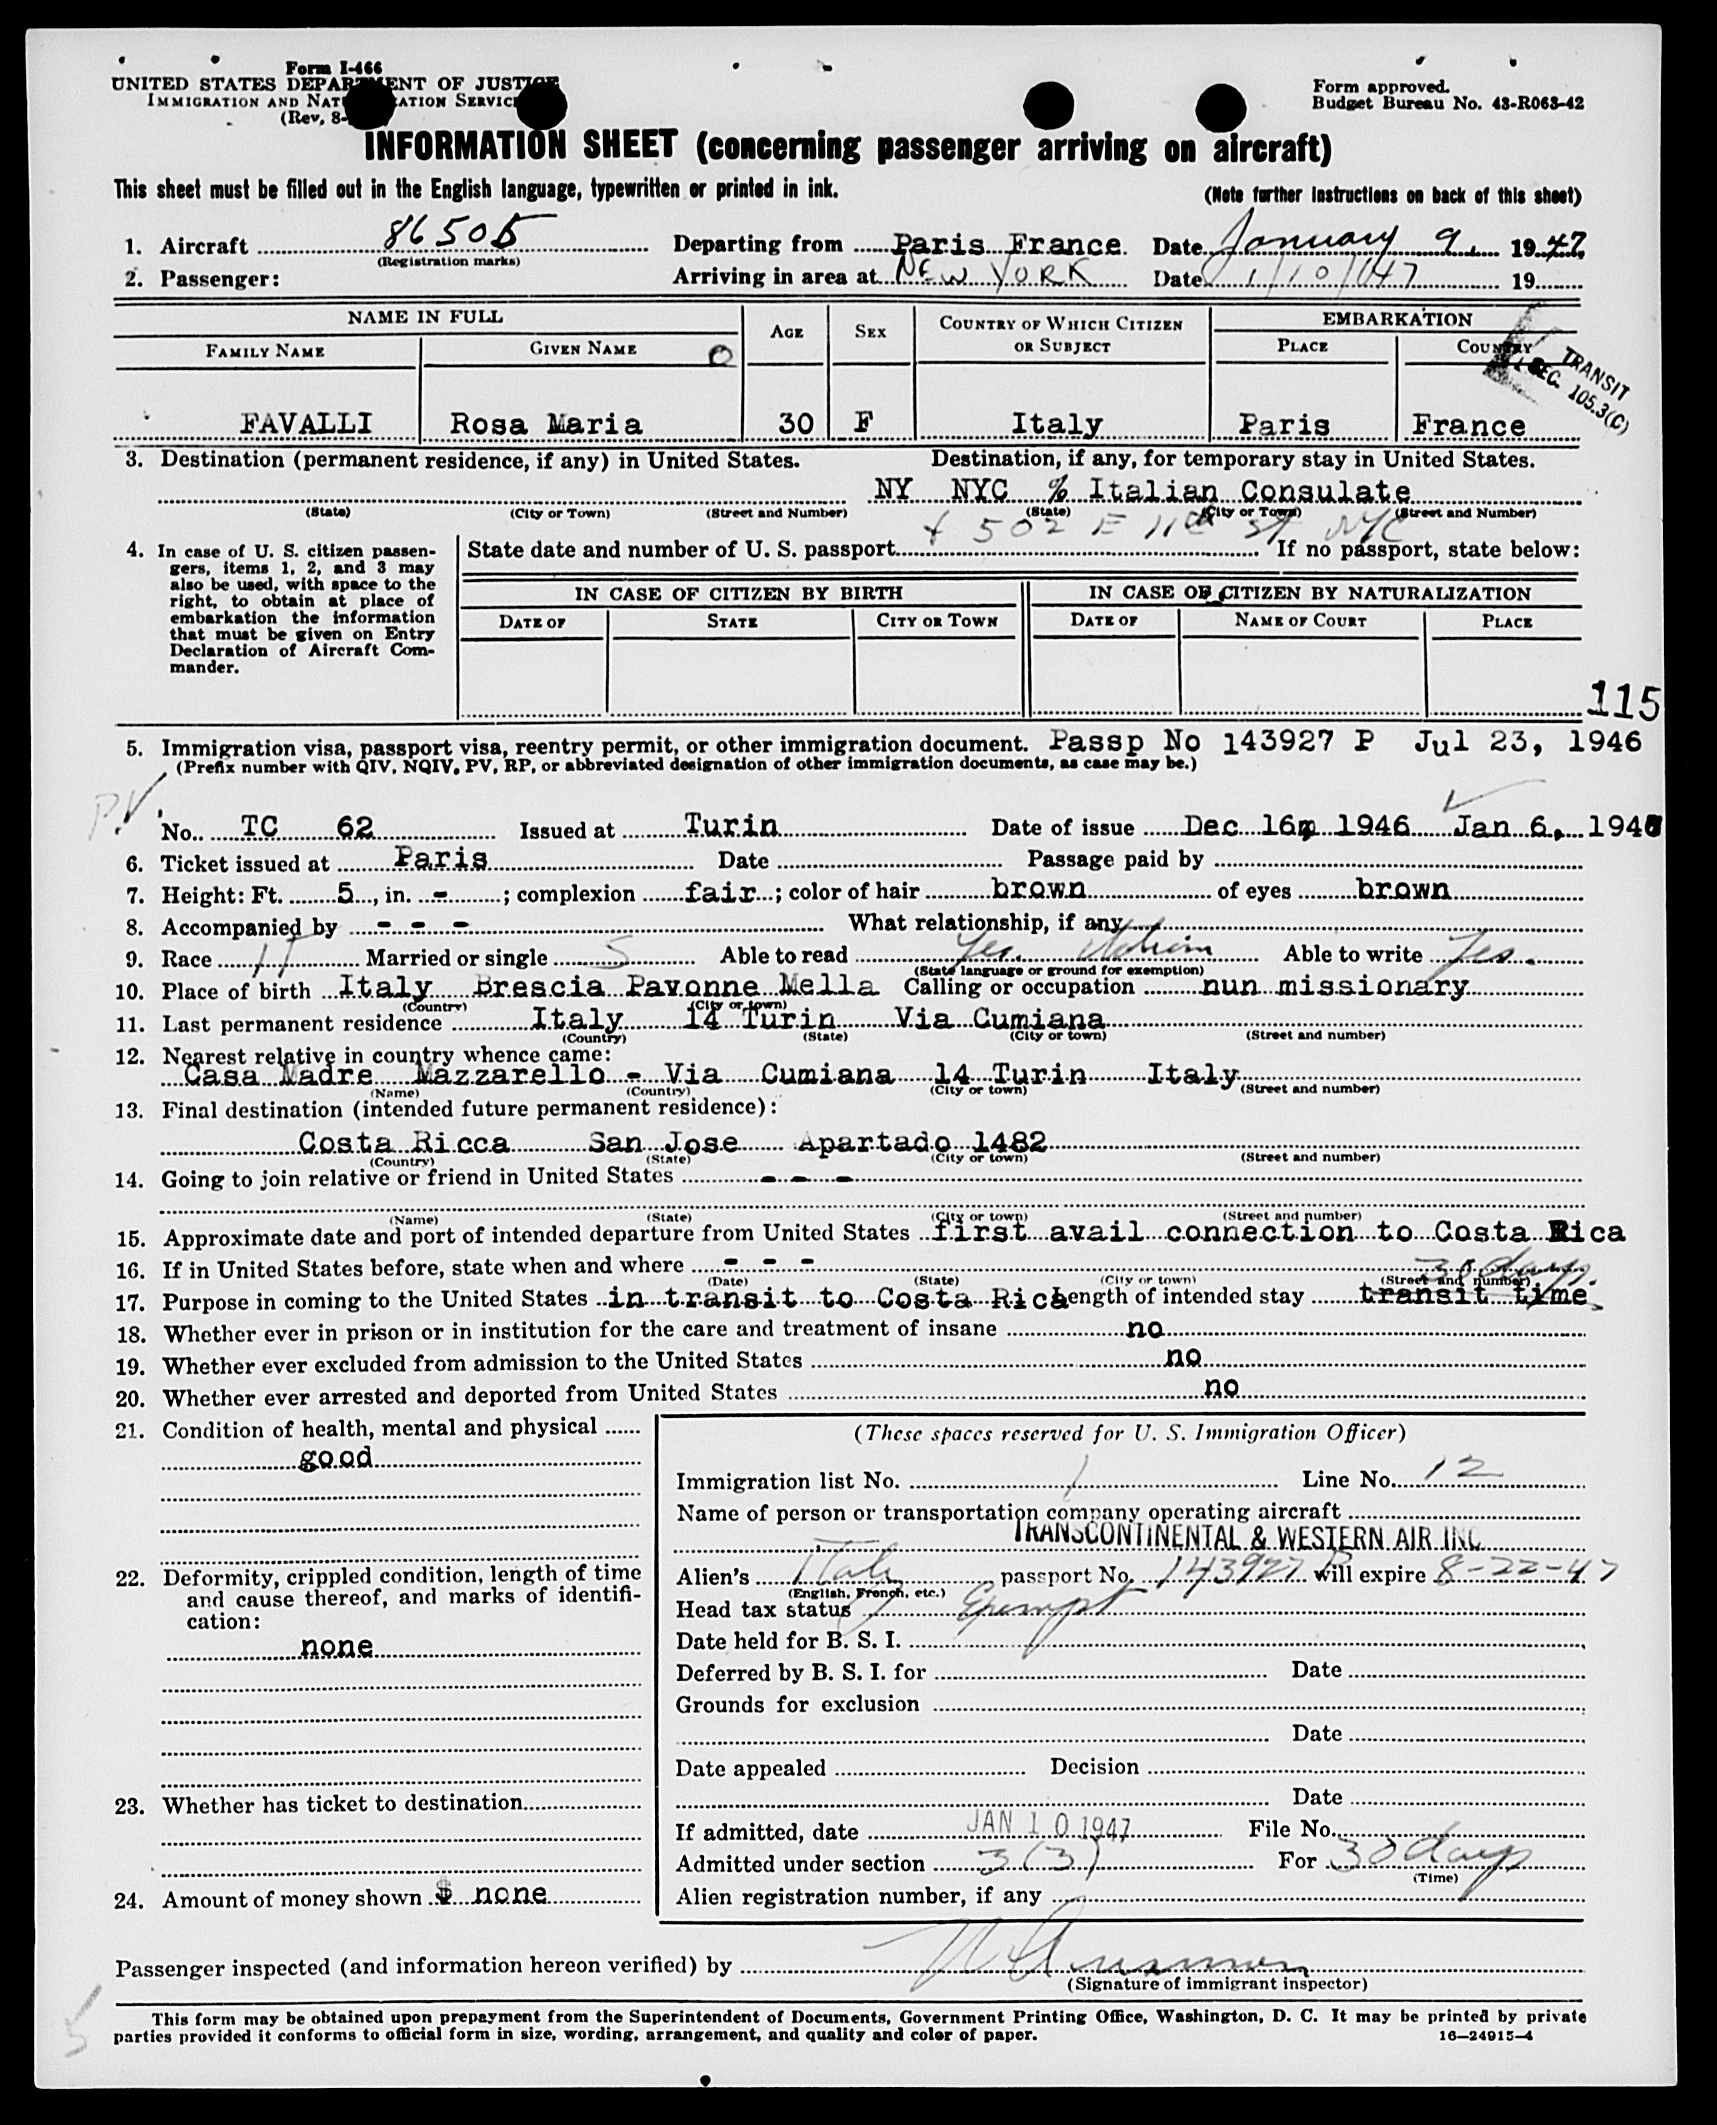 Form I-466
UNITED STATES DEPARTMENT OF JUSTICE
IMMIGRATION AND NATURALIZATION SERVICE
(Rev. 8-
Form approved.
Budget Bureau No. 43-R063-42
INFORMATION SHEET (concerning passenger arriving on aircraft)
This sheet must be filled out in the English language, typewritten or printed in ink.
(Note further instructions on back of this sheet)
1. Aircraft 86505 Departing from Paris France Date January 9, 1947
(Registration marks)
2. Passenger: Arriving in area at NEW YORK Date 1/10/47 19
NAME IN FULL AGE SEX COUNTRY OF WHICH CITIZEN OR SUBJECT EMBARKATION
FAMILY NAME GIVEN NAME PLACE COUNTRY
TRANSIT
SEC. 105.3(C)
FAVALLI Rosa Maria 30 F Italy Paris France
3. Destination (permanent residence, if any) in United States. Destination, if any, for temporary stay in United States.
NY NYC % Italian Consulate
(State) (City or Town) (Street and Number) (State) (City or Town) (Street and Number)
502 E 11th St NYC
4. In case of U. S. citizen passen-
gers, items 1, 2, and 3 may
also be used, with space to the
right, to obtain at place of
embarkation the information
that must be given on Entry
Declaration of Aircraft Com-
mander.
State date and number of U. S. passport If no passport, state below:
IN CASE OF CITIZEN BY BIRTH IN CASE OF CITIZEN BY NATURALIZATION
DATE OF STATE CITY OR TOWN DATE OF NAME OF COURT PLACE
115
5. Immigration visa, passport visa, reentry permit, or other immigration document. Passp No 143927 P Jul 23, 1946
(Prefix number with QIV, NQIV, PV, RP, or abbreviated designation of other immigration documents, as case may be.)
PV
No. TC 62 Issued at Turin Date of issue Dec 16, 1946 Jan 6, 1947
6. Ticket issued at Paris Date Passage paid by
7. Height: Ft. 5, in. - ; complexion fair ; color of hair brown of eyes brown
8. Accompanied by - - - What relationship, if any
9. Race IT Married or single S Able to read Yes. Italian Able to write Yes.
(State language or ground for exemption)
10. Place of birth Italy Brescia Pavonne Mella Calling or occupation nun missionary
(Country) (City or town)
11. Last permanent residence Italy 14 Turin Via Cumiana
(Country) (State) (City or town) (Street and number)
12. Nearest relative in country whence came:
Casa Madre Mazzarello - Via Cumiana 14 Turin Italy
(Name) (Country) (City or town) (Street and number)
13. Final destination (intended future permanent residence):
Costa Ricca San Jose Apartado 1482
(Country) (State) (City or town) (Street and number)
14. Going to join relative or friend in United States - - -
(Name) (State) (City or town) (Street and number)
15. Approximate date and port of intended departure from United States first avail connection to Costa Rica
16. If in United States before, state when and where - - -
(Date) (State) (City or town) (Street and number)
30 days.
17. Purpose in coming to the United States in transit to Costa Rica Length of intended stay transit time
18. Whether ever in prison or in institution for the care and treatment of insane no
19. Whether ever excluded from admission to the United States no
20. Whether ever arrested and deported from United States no
21. Condition of health, mental and physical
good
22. Deformity, crippled condition, length of time
and cause thereof, and marks of identifi-
cation:
none
23. Whether has ticket to destination
24. Amount of money shown $ none
(These spaces reserved for U. S. Immigration Officer)
Immigration list No. 1 Line No. 12
Name of person or transportation company operating aircraft
TRANSCONTINENTAL & WESTERN AIR INC.
Alien's Italy passport No. 143927 P will expire 8-22-47
(English, French, etc.)
Head tax status Exempt
Date held for B. S. I.
Deferred by B. S. I. for Date
Grounds for exclusion
Date
Date appealed Decision
Date
If admitted, date JAN 10 1947 File No.
Admitted under section 3(3) For 30 days
(Time)
Alien registration number, if any
Passenger inspected (and information hereon verified) by
(Signature of immigrant inspector)
5
This form may be obtained upon prepayment from the Superintendent of Documents, Government Printing Office, Washington, D. C. It may be printed by private
parties provided it conforms to official form in size, wording, arrangement, and quality and color of paper.
16—24915-4